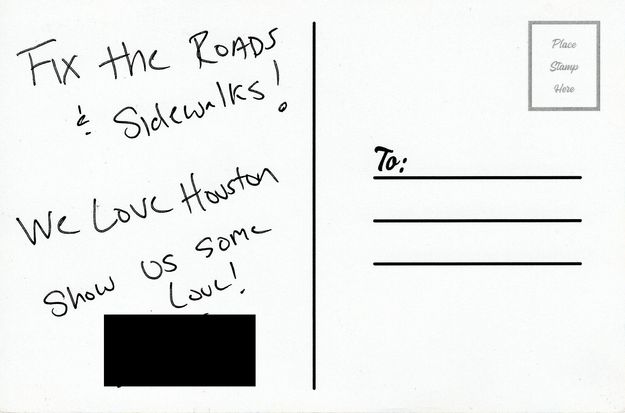 Fix the Roads
& Sidewalks!
We Love Houston
Show us some
Love!
Place
Stamp
Here
To: